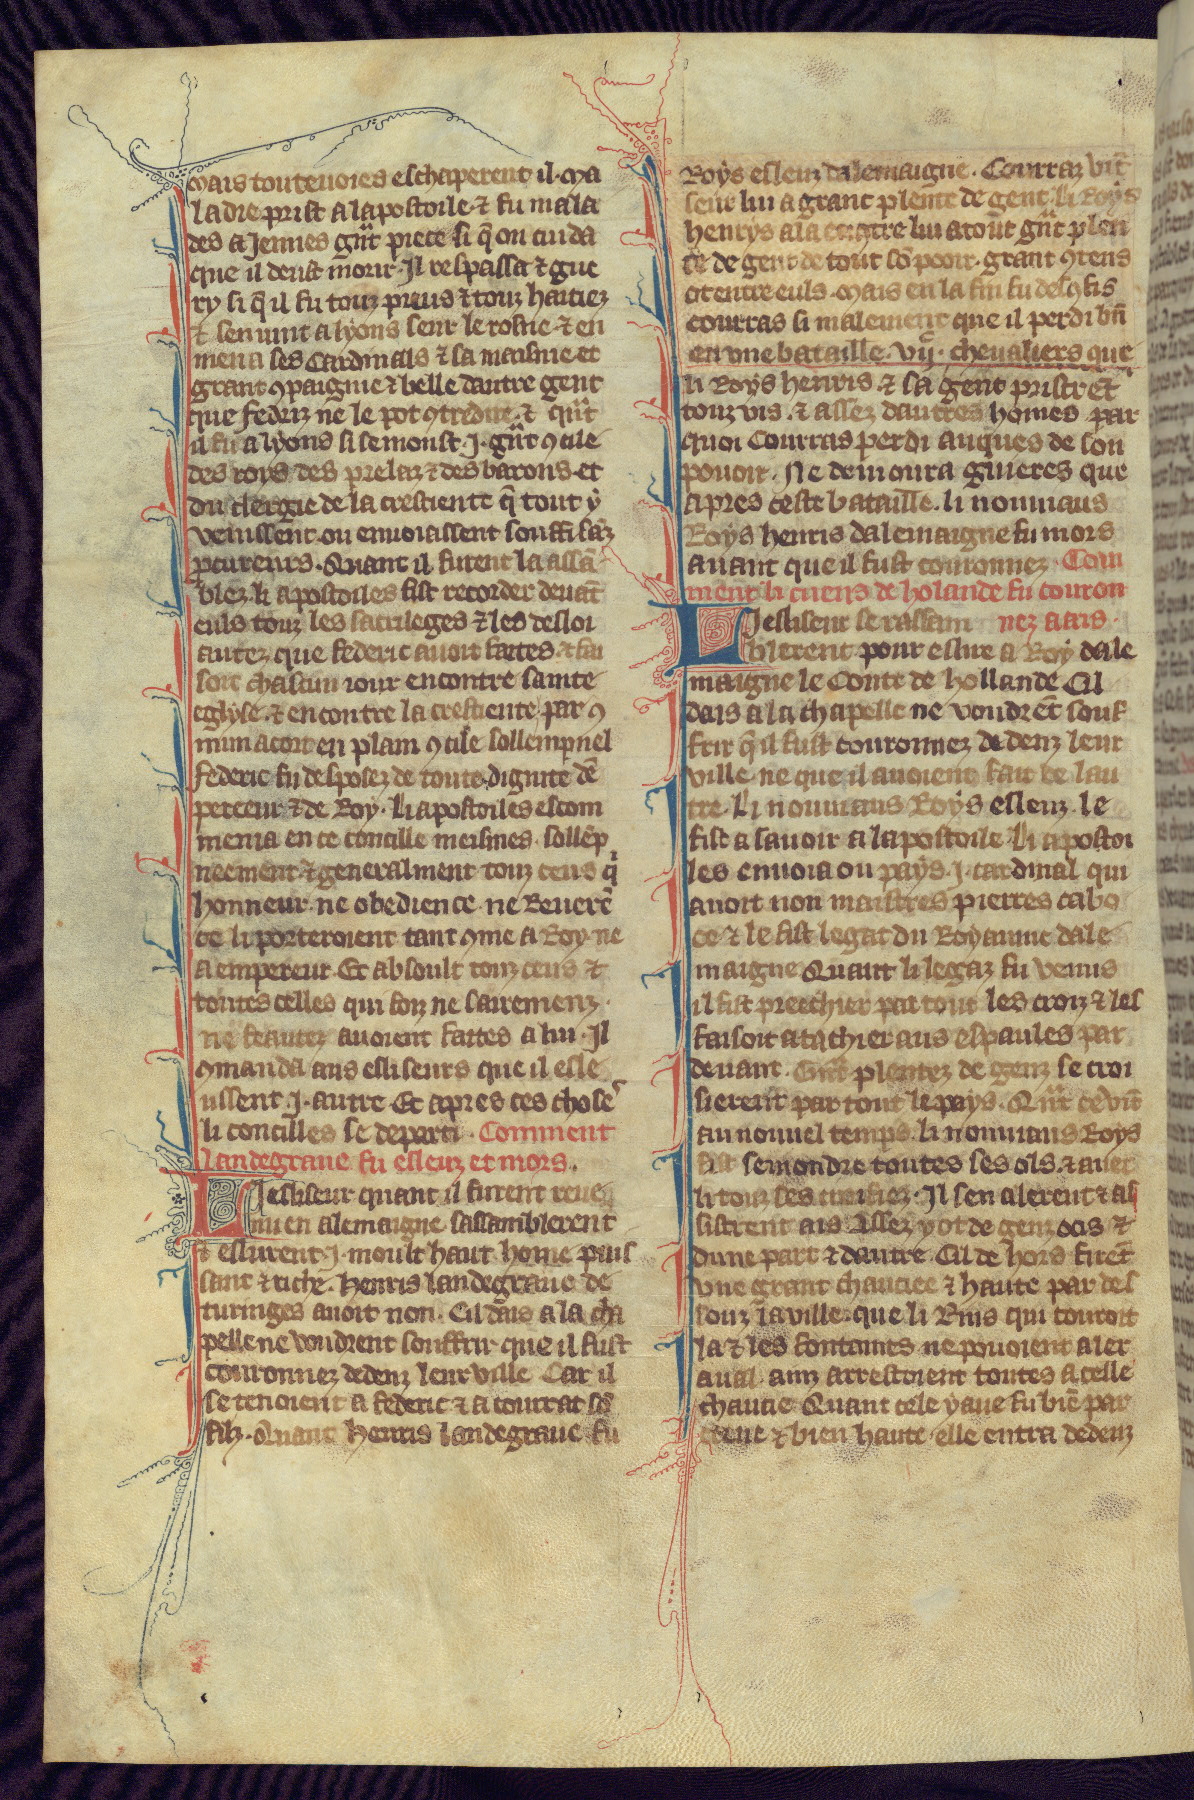 mais toutenoies eschaperent il. ma
ladie prist a lapostoile ⁊ fu mala
des a Jennes gūt piece si q̄ on cuida
que il deust morir. Il respassa ⁊ gue
ry si q̄ il fu touz preus ⁊ touz haitiez
⁊ sen uint a lyons seur le rosne ⁊ en
mena ses Cardinals ⁊ sa maisnie et
grant ꝯpaignie ⁊ belle dautre gent
que fedriz ne le pot ꝯtredire. ⁊ qūt
il fu a lyons si semonst .j. gūt ꝯcile
des roys des prelaz ⁊ des barons et
du clergie de la crestiente q̄ tout y
uenissent ou enuoiassent souffisāz
ꝓcureurs. Quant il furent la assā
blez li apostoiles fist recorder deuāt
euls touz les sacrileges ⁊ les desloi
autez que federic auoit faites. ⁊ fai
soit chascun iour encontre sainte
eglyse. ⁊ encontre la crestiente par ꝯ
mun acort en plain ꝯcile sollempnel
federic fu desposez de toute dignite dē
pereeur ⁊ de Roy. Li apostoiles escom
menia en ce concille meismes sollēp
neement ⁊ generalment touz ceus q̄
honneur ne obedience ne Reuerē
ce li porteroient tant ꝯme a Roy ne
a empereur Et absoult touz ceus ⁊
toutes celles qui foiz ne sairemenz
ne feautez auoient faites a lui. Il
ꝯmanda aus esliseurs que il esle
ussent .j. autre Et apres ces chosē
li concilles se departi. Comment
landegraue fu esleuz et mors.
Li esliseur quant il furent reue
nu en alemaigne sassamblerent
⁊ eslurent .j. moult haut home puis
sant ⁊ riche. Henris landegraue de
turinges auoit non. Cil dais a la cha
pelle ne voudrent souffrir que il fust
couronnez dedenz leur ville Car il
se tenoient a federic ⁊ a courrat sō
filz. Quant Henris landegraue fu
Roys esleuz dalemaigne. Courraz vīt
seur lui a grant plente de gent. li Roys
henrys ala encontre lui a tout gūt plen
te de gent de tout sō pooir. grant ꝯtens
ot entre euls. mais en la fin fu desꝯfis
courras si malement que il perdi bn̄
en une bataille. vij. chevaliers que
li Roys henris. ⁊ sa gent pristrēt
touz vis. ⁊ assez dautres homes par
quoi Courras perdi auques de son
pouoir. Ne demoura guieres que
apres ceste bataille. li nouuiaus
Roys henris dalemaigne fu mors
auant que il fust couronnez. Com
ment li cuens de holande fu couron
Li esliseur se rassam nez a ais.
blerent pour eslire a Roy dale
maigne le Conte de hollande Cil
dais a la chapelle ne voudrēt souf
frir q̄ il fust couronnez dedenz leur
ville ne que il auoient fait de lau
tre. Li nouuiaus Roys esleuz le
fist a sauoir a lapostoile Li apostoi
les enuoia ou pays .j. cardinal qui
auoit non maistres pierres cabo
ce ⁊ le fist legat du Royaume dale
maigne Quant li legaz fu venus
il fist preechier par tout les croiz ⁊ les
faisoit atachier aus espaules par
deuant. Gūt plentez de genz se croi
sierent par tout le pays. Qūt ce vīt
au nouuel temps. li nouuiaus Roys
fist semondre toutes ses ols. ⁊ auec
li touz ses croisiez. Il sen alerent ⁊ as
sistrent ais Assez y ot de genz ocis ⁊
dune part ⁊ dautre. Cil de hors firēt
vne grant chauciee ⁊ haute par des
souz la ville. que li Ruis qui couroit
la ⁊ les fontaines ne pouoient aler
aual. ainz arrestoient toutes a celle
chaucie Quant cele yaue fu biē par
creue ⁊ bien haute elle entra dedenz